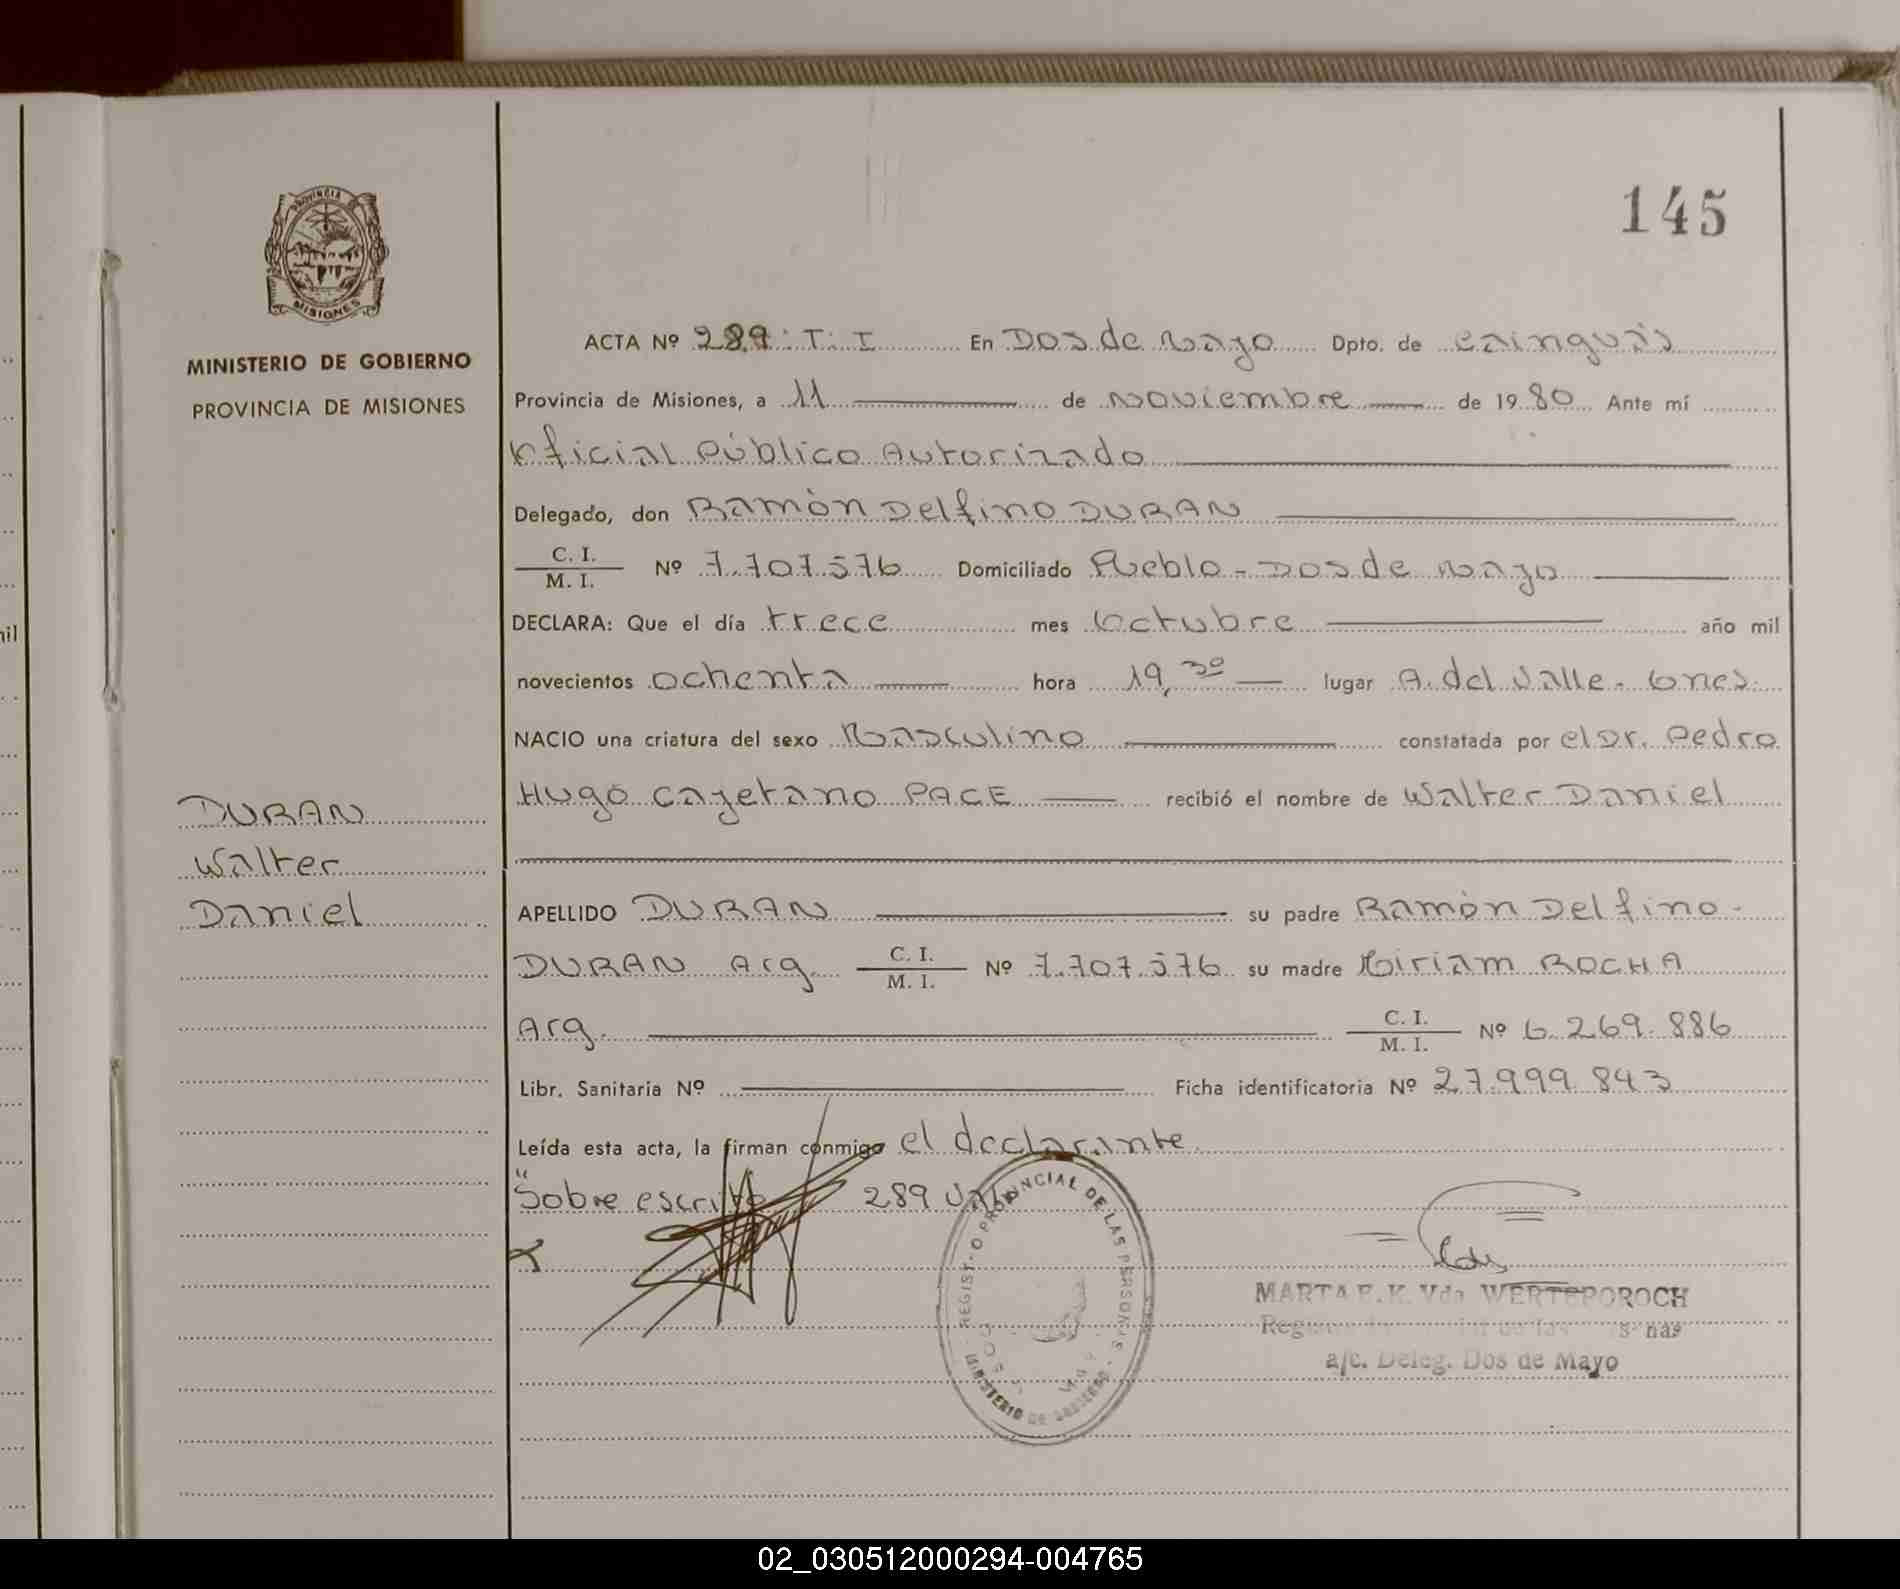 145
PROVINCIA DE
MISIONES
MINISTERIO DE GOBIERNO
PROVINCIA DE MISIONES
ACTA Nº 289 T: I En Dos de Mayo Dpto. de Cainguás
Provincia de Misiones, a 11 de Noviembre de 1980 Ante mí
Oficial Público Autorizado
Delegado, don Ramón Delfino DURAN
C. I.
M. I. Nº 7.707.576 Domiciliado Pueblo - Dos de Mayo
DECLARA: Que el día trece mes Octubre año mil
novecientos ochenta hora 19,30 lugar A. del Valle - Ones.
NACIO una criatura del sexo Masculino constatada por el Dr. Pedro
Hugo Cayetano PACE recibió el nombre de Walter Daniel
DURAN
Walter
Daniel
APELLIDO DURAN su padre Ramón Delfino -
DURAN Arg. C. I.
M. I. Nº 7.707.576 su madre Miriam ROCHA
Arg. C. I.
M. I. Nº 6.269.886
Libr. Sanitaria Nº Ficha identificatoria Nº 27.999.843
Leída esta acta, la firman conmigo el declarante.
"Sobre escrito 289 Vale
REGISTRO PROVINCIAL DE LAS PERSONAS
MINISTERIO DE GOBIERNO
MARTA E. K. Vda WERTEPOROCH
a/c. Deleg. Dos de Mayo
nil
02_030512000294-004765